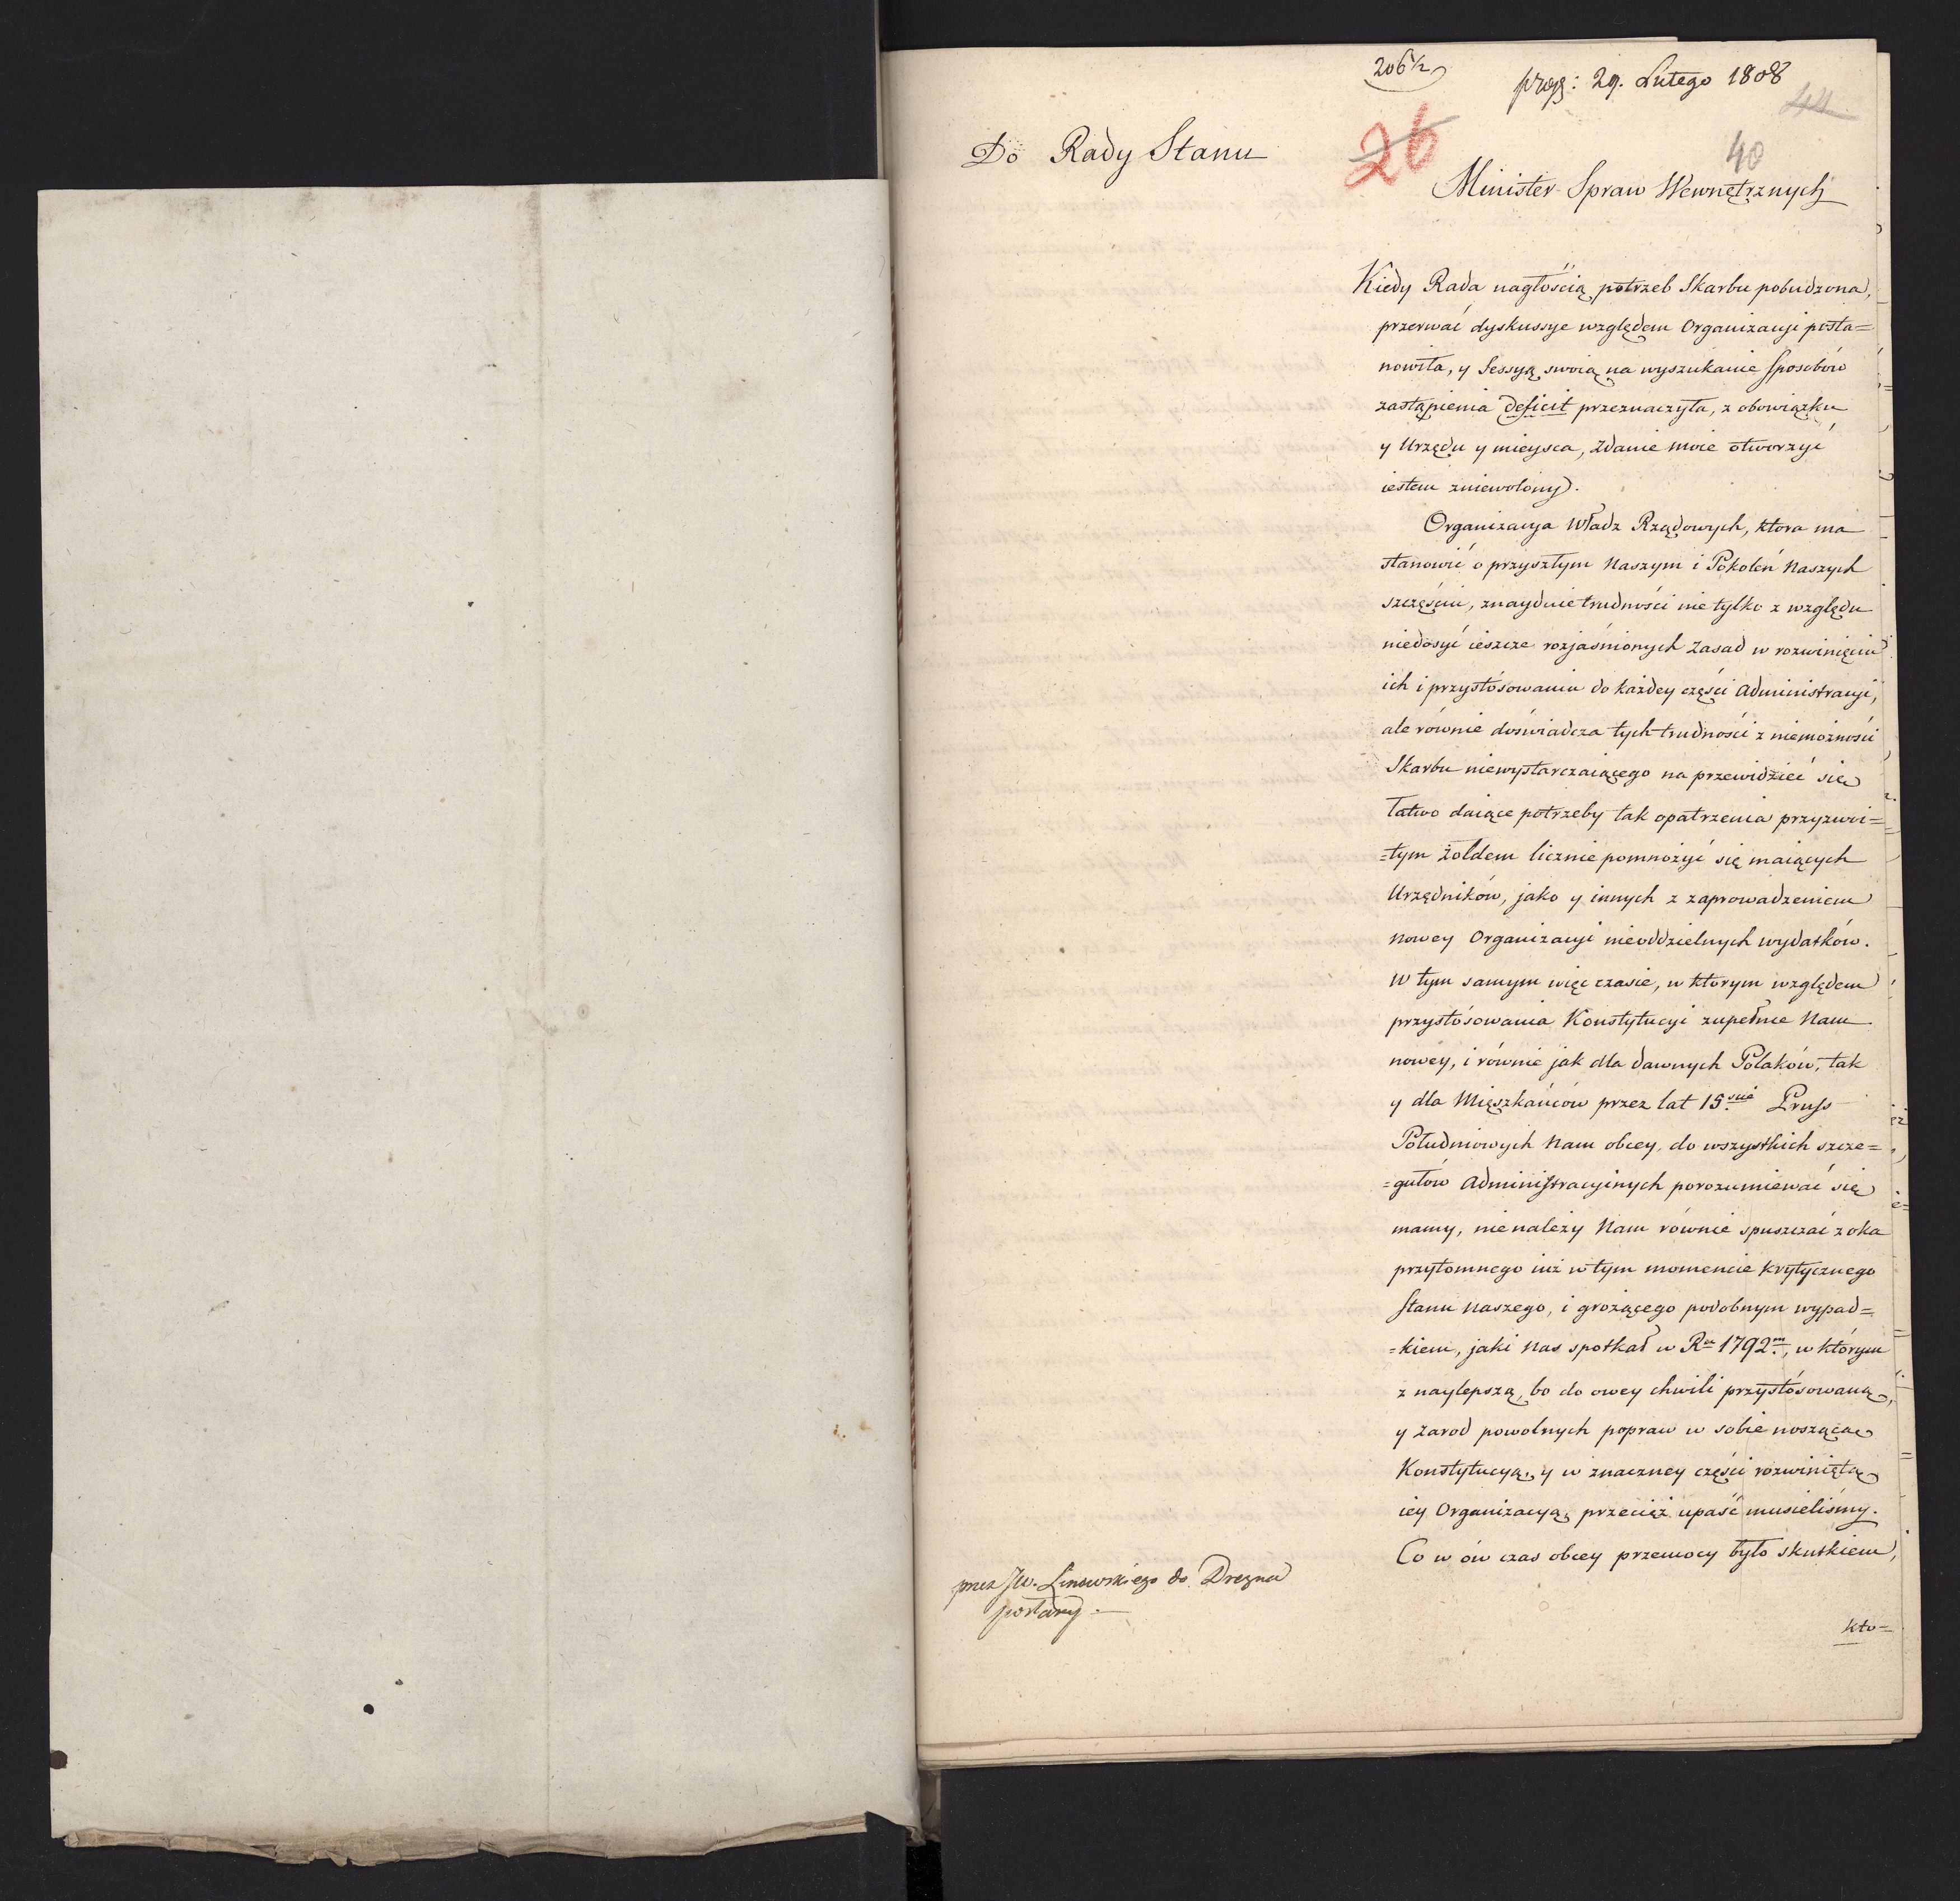 206½
29. Lutego 1808
44
26
40
Do Rady Stanu
Minister Spraw Wewnętrznych
Kiedy Rada nagłością potrzeb Skarbu pobudzona,
przerwać dyskussye względem Organizacyi posta=
nowiła, y Sessyą swoią na wyszukanie sposobów
zastąpienia deficit przeznaczyła, z obowiązku
y Urzędu y mieysca, zdanie moie otworzyć
iestem zniewolony.
Organizacya Władz Rządowych, ktora ma
stanowić o przyszłym Naszym i Pokoleń Naszych
szczęściu, znayduie trudności nie tylko z względu
niedosyć ieszcze rozjaśnionych zasad w rozwinięciu
ich i przystósowaniu do każdey części Administracyi,
ale równie doświadcza tych trudności z niemożności
Skarbu niewystarczaiącego na przewidzieć się
łatwo daiące potrzeby tak opatrzenia przyzwoi=
=tym żołdem licznie pomnożyć się maiących
Urzędników, jako y innych z zaprowadzeniem
nowey Organizacyi nieoddzielnych wydatków.
W tym samym więc czasie, w ktorym względem
przystósowania Konstytucyi zupełnie Nam
nowey, i równie jak dla dawnych Polaków, tak
y dla Mięszkańców przez lat 15.ście Pruss
Południowych Nam obcey, do wszystkich szcze=
=gułów Administracyinych porozumiewać się
mamy, nie należy Nam równie spuszczać z oka
przytomnego iuż w tym momencie krytycznego
stanu naszego, i grożącego podobnym wypad=
=kiem, jaki nas spotkał w Ru 1792m, w którym
z naylepszą, bo do owey chwili przystósowaną,
y zarod powolnych popraw w sobie noszącą
Konstytucyą, y w znaczney części rozwiniętą
iey Organizacyą, przecież upaść musieliśmy.
Co w ów czas obcey przemocy było skutkiem,
kto=
przez JW. Linowskiego do Drezna
posłany.